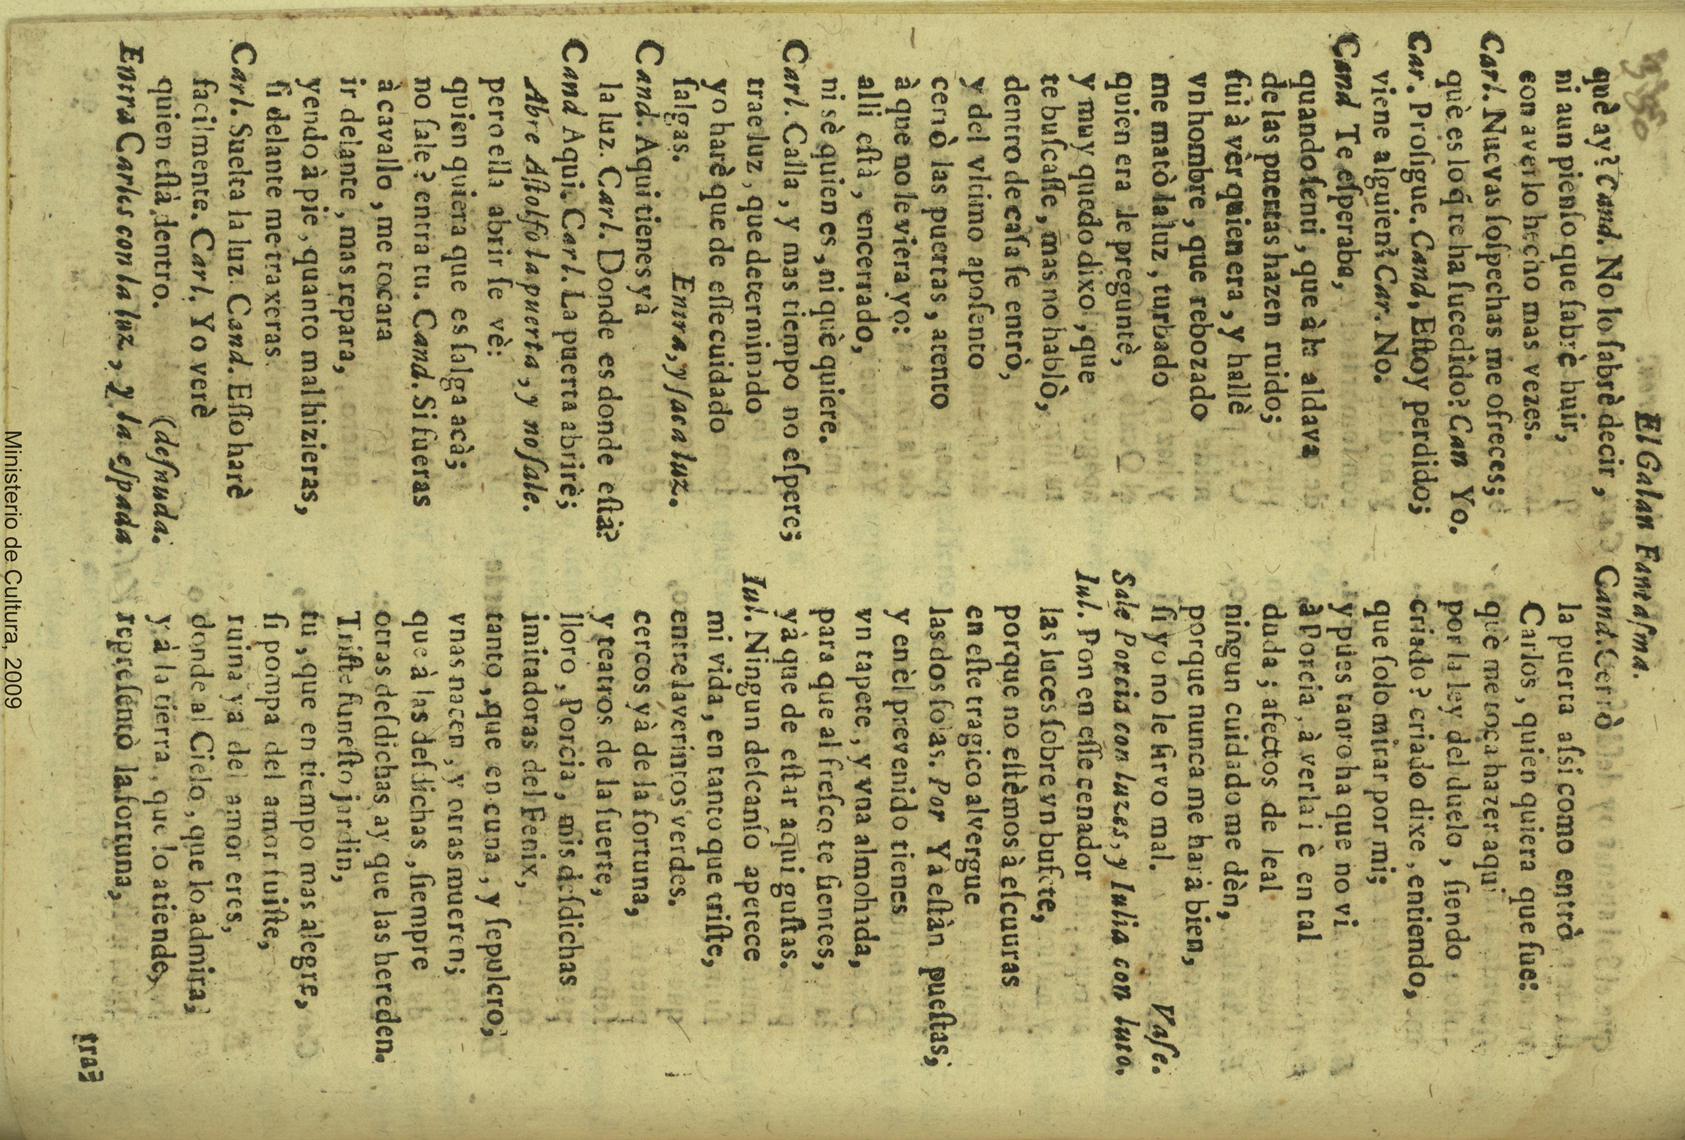 El Galan Fantasma.
què ay? Cand. No lo ſabrè decir,
ni aun pienſo que ſabrè huir,
con averlo hecho mas vezes.
Carl. Nuevas ſoſpechas me ofreces;
què es lo q̃ te ha ſucedido? Can Yo.
Car. Proſigue. Cand, Eſtoy perdido;
viene alguien? Car. No.
Cand Te eſperaba,
quando ſenti, que à la aldava
de las puertas hazen ruido;
fui à vèr quien era, y hallè
vn hombre, que rebozado
me matò la luz, turbado
quien era le preguntè,
y muy quedo dixo, que
te buſcaſſe, mas no hablò,
dentro de caſa ſe entrò,
y del vltimo apoſento
cerrò las puertas, atento
à que no le viera yo:
alli eſtà, encerrado,
ni sè quien es, ni què quiere.
Carl. Calla, y mas tiempo no eſperes;
trae luz, que determinado
yo harè que de eſſe cuidado
ſalgas. Entra, y ſaca luz.
Cand. Aqui tienes yà
la luz. Carl. Donde es donde eſtà?
Cand Aqui. Carl. La puerta abrirè;
Abre Aſtolfo la puerta, y no ſale.
pero ella abrir ſe vè:
quien quiera que es ſalga acà;
no ſale? entra tu. Cand. Si fueras
à cavallo, me tocara
ir delante, mas repara,
yendo à pie, quanto mal hizieras,
ſi delante me traxeras.
Carl. Suelta la luz. Cand. Eſſo harè
facilmente. Carl. Yo verè
quien eſtà dentro. (deſnuda.
Entra Carlos con la luz, y la eſpada
Cand. Cerrò
la puerta aſsi como entrò
Carlos, quien quiera que fue:
què me toca hazer aqui
por la ley del duelo, ſiendo
criado? criado dixe, entiendo,
que ſolo mirar por mi;
y pues tanto ha que no vi
à Porcia, à verla irè en tal
duda; afectos de leal
ningun cuidado me dèn,
porque nunca me harà bien,
ſi yo no le ſirvo mal. Vaſe.
Sale Porcia con luzes, y Iulia con luto.
Iul. Pon en eſſe cenador
las luces ſobre vn bufete,
porque no eſtèmos à eſcuras
en eſte tragico alvergue
las dos ſolas. Por Yà eſtàn pueſtas,
y en èl prevenido tienes
vn tapete, y vna almohada,
para que al freſco te ſientes,
yà que de eſtar aqui guſtas.
Iul. Ningun deſcanſo apetece
mi vida, en tanto que triſte,
entre laverintos verdes.
cercos yà de la fortuna,
y teatros de la ſuerte,
lloro, Porcia, mis deſdichas
imitadoras del Fenix,
tanto, que en cuna, y ſepulcro,
vnas nacen, y otras mueren;
que à las deſdichas, ſiempre
otras deſdichas ay que las hereden.
Triſte funeſto jardin,
tu, que en tiempo mas alegre,
ſi pompa del amor fuiſte,
ruina yà del amor eres,
donde al Cielo, que lo admira,
y à la tierra, que lo atiende,
repreſentò la fortuna,
tra-
Ministerio de Cultura, 2009